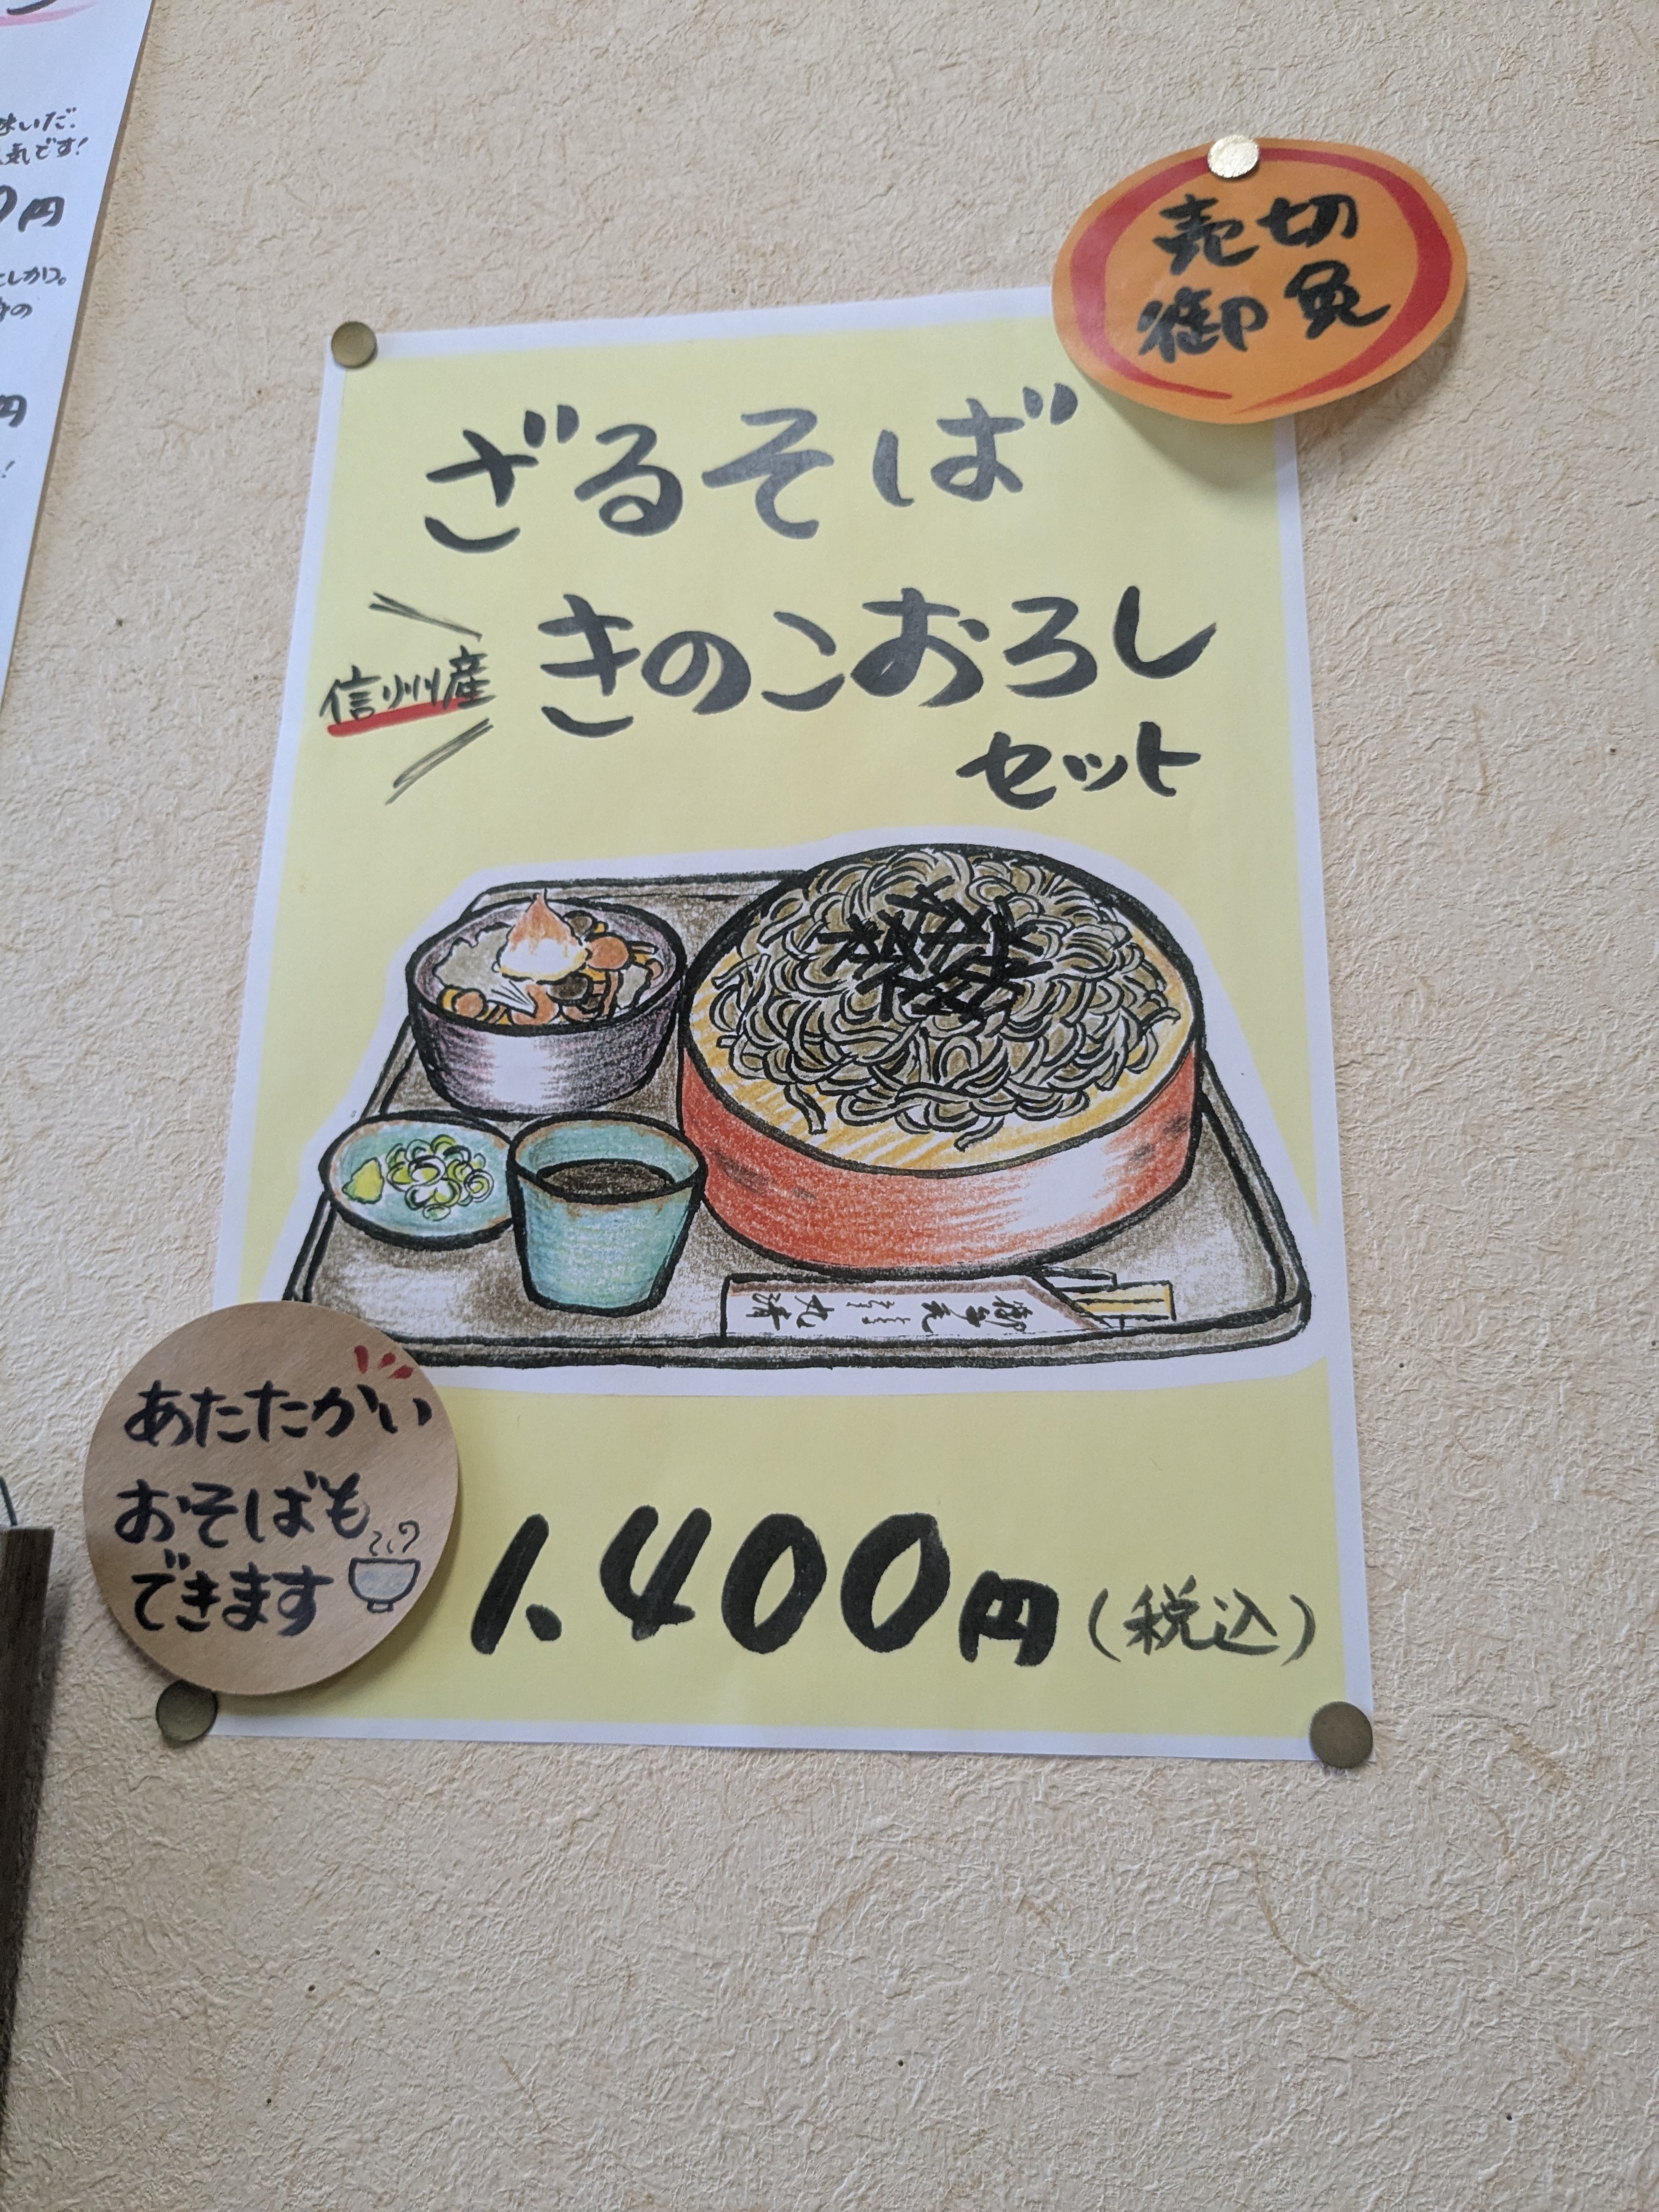 売切
御免
ざるそば
信州産
きのこおろし
セット
あたたかい
おそばも
できます
1,400円(税込)
気です!
円